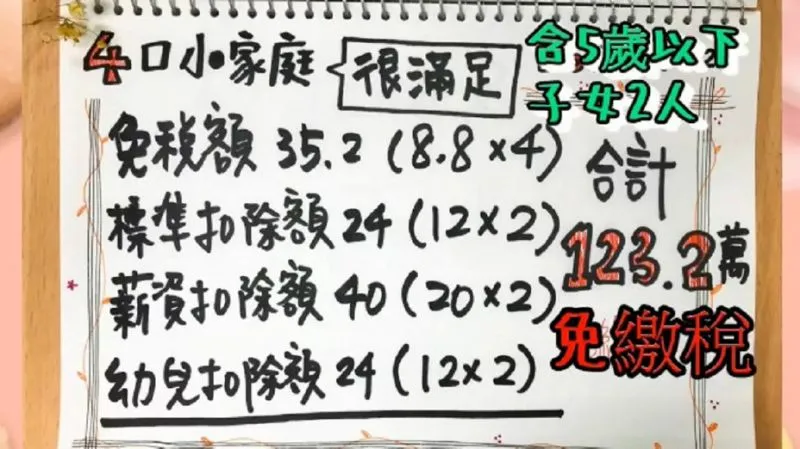 4口小家庭 很滿足
含5歲以下
子女2人
免稅額 35.2 (8.8×4)
標準扣除額 24 (12×2)
薪資扣除額 40 (20×2)
幼兒扣除額 24 (12×2)
合計
123.2萬
免繳稅